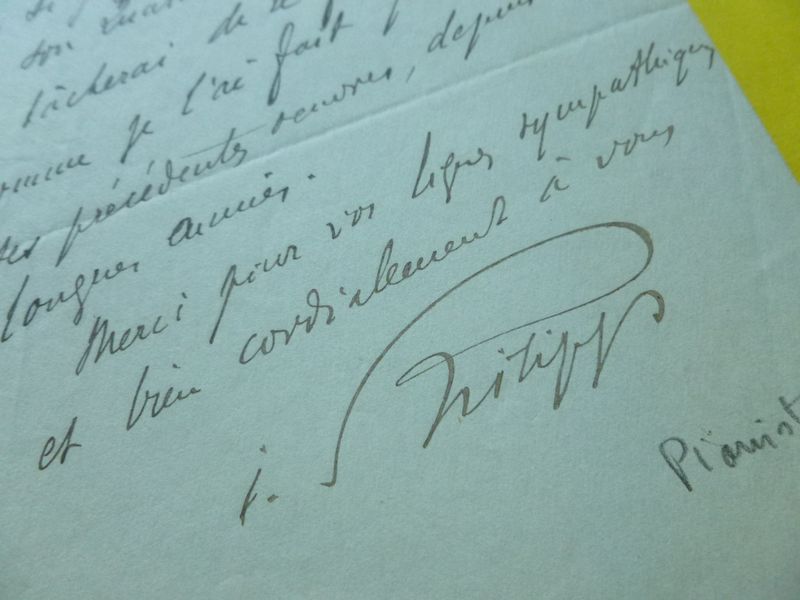 son
tâcherai de
comme je l'ai fait
précédentes œuvres, depuis
longues années.
Merci pour vos lignes sympathiques
et bien cordialement à vous
i. Philipp
Pianist